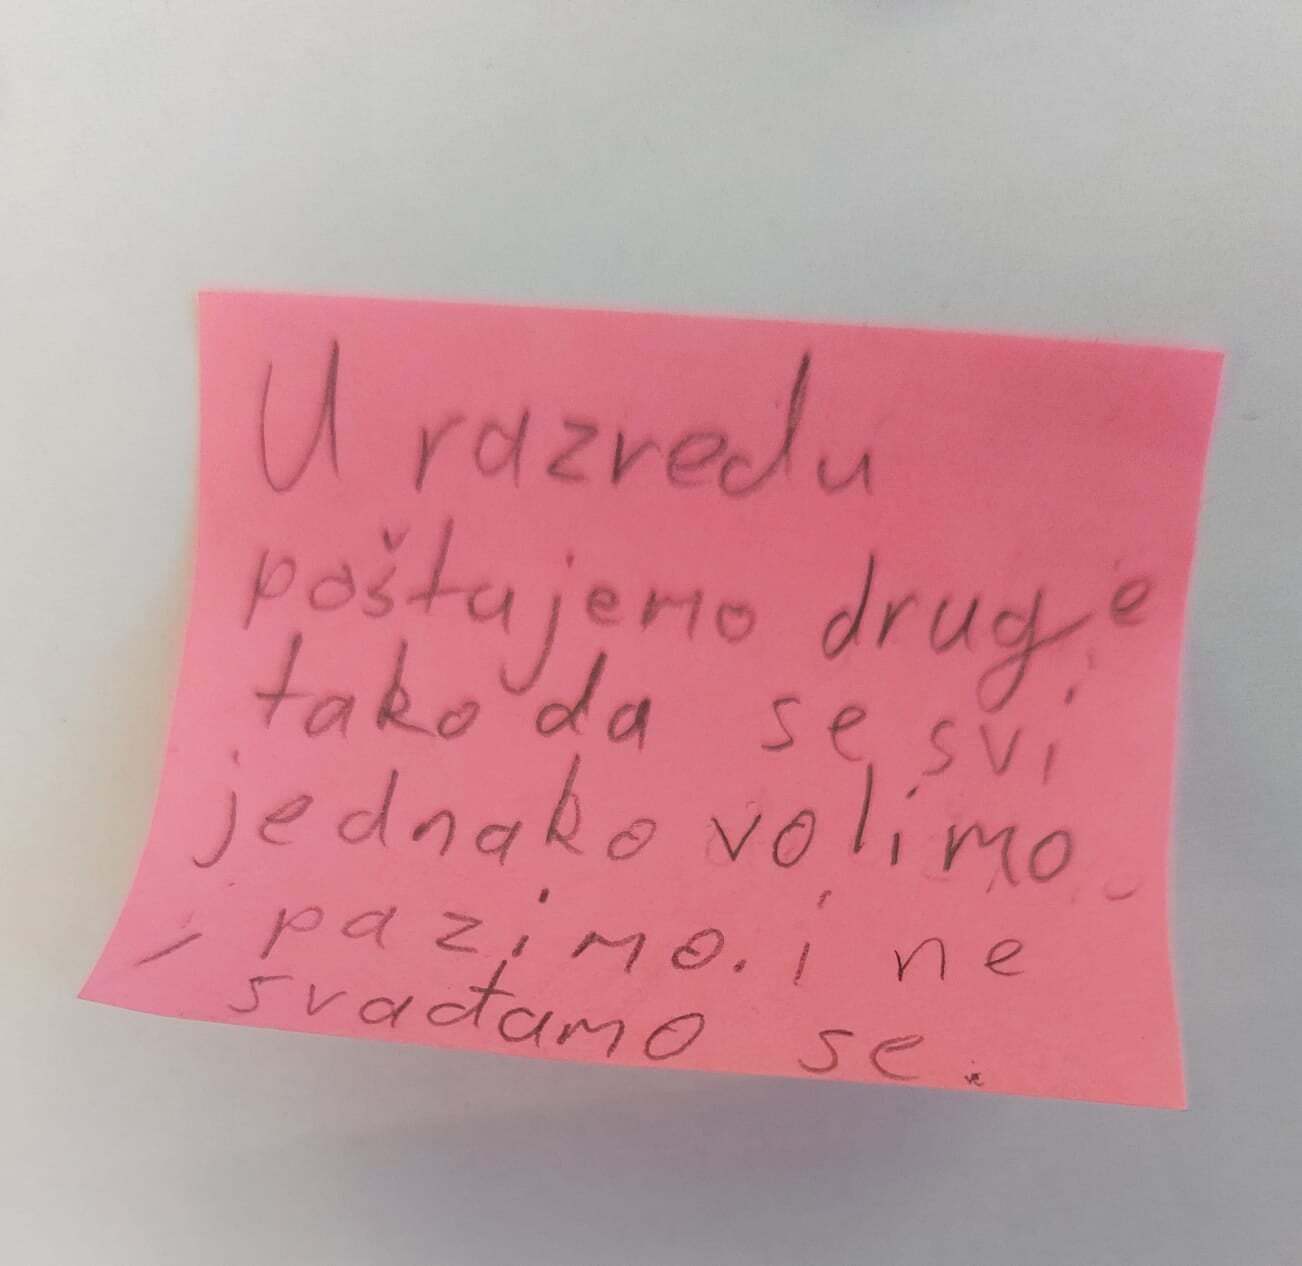 U razredu
poštujemo druge
tako da se svi
jednako volimo
, pazimo. i ne
svađamo se.